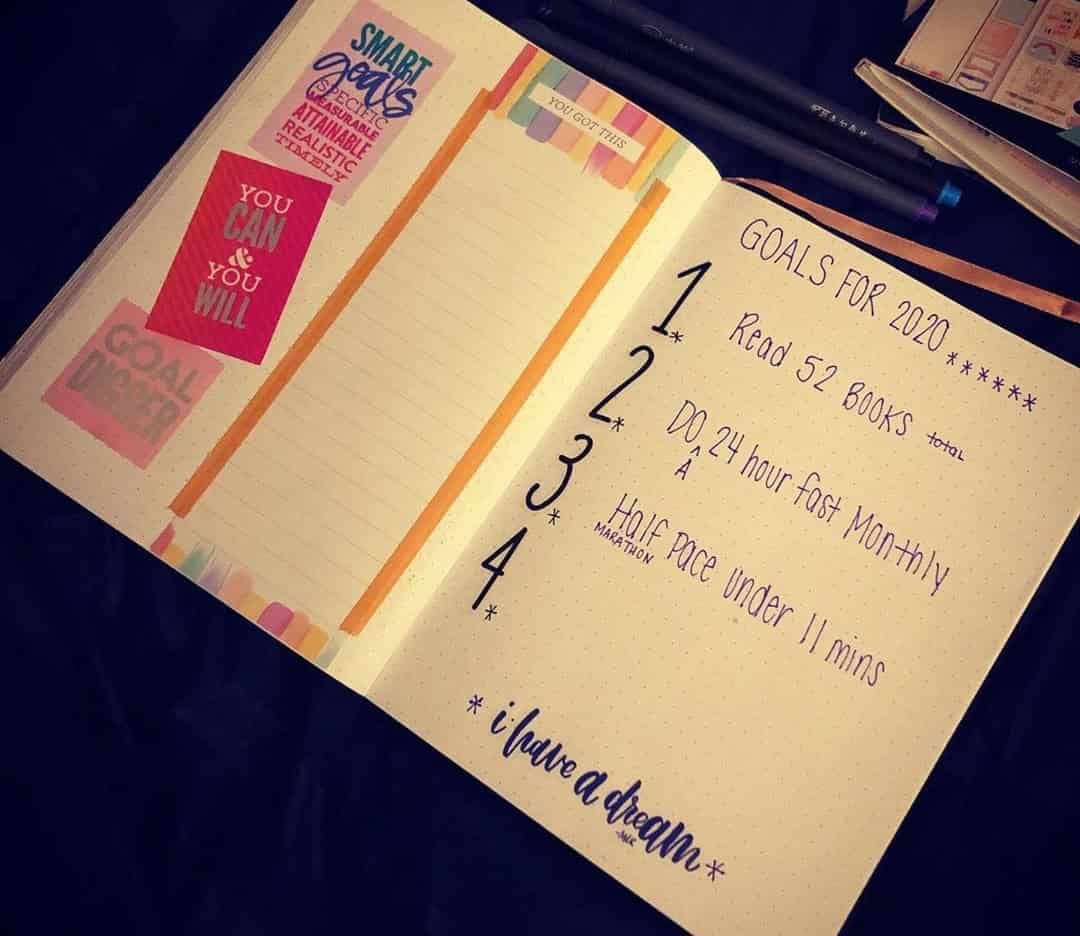 SMART
goals
SPECIFIC
MEASURABLE
ATTAINABLE
REALISTIC
TIMELY
YOU
CAN
&
YOU
WILL
GOAL
DIGGER
YOU GOT THIS
GOALS FOR 2020 ******
1* Read 52 BOOKS total
2* DO ^ 24 hour fast Monthly
A
3* Half Pace under 11 mins
MARATHON
4*
* i have a dream *
-MLK